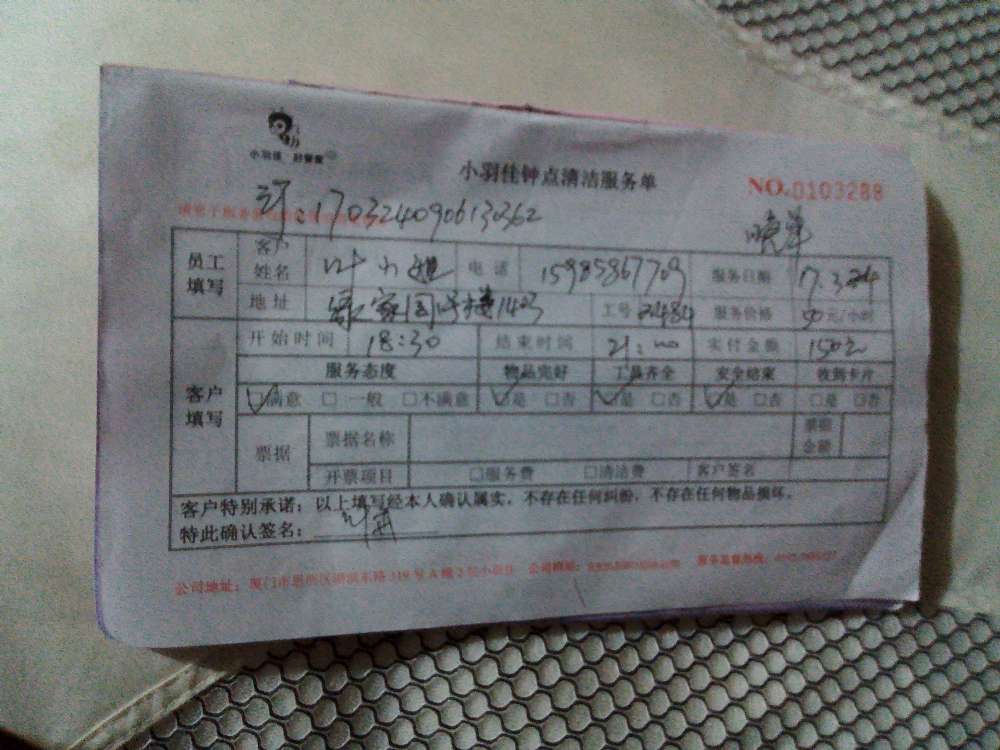 小羽佳
小羽佳钟点清洁服务单
NO.0103288
订:170324090613262
晚单
员工填写 客户姓名 叶小姐 电话 15985867709 服务日期 17.3.24
地址 1403 工号 服务价格 50元/小时
客户填写 开始时间 18:30 结束时间 21:00 实付金额
服务态度 物品完好 工具齐全 安全结束 收到卡片
☑满意 □一般 □不满意 ☑是 □否 ☑是 □否 ☑是 □否 □是 □否
票据 票据名称 票据金额
开票项目 □服务费 □清洁费 客户签名
客户特别承诺:以上填写经本人确认属实,不存在任何纠纷,不存在任何物品损坏。
特此确认签名:
公司地址:厦门市思明区湖滨东路319号A幢2层小羽佳 公司网站: 服务监督热线: